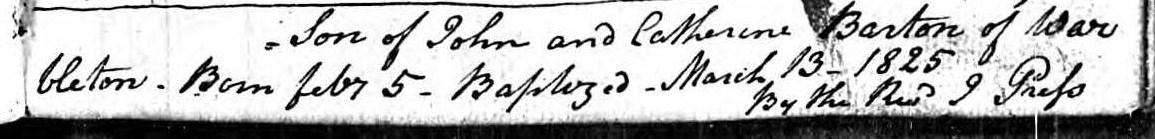 - Son of John and Catherine Barton of War
bleton - Born febr 5 - Baptized - March 13 - 1825
By the Revd J Press